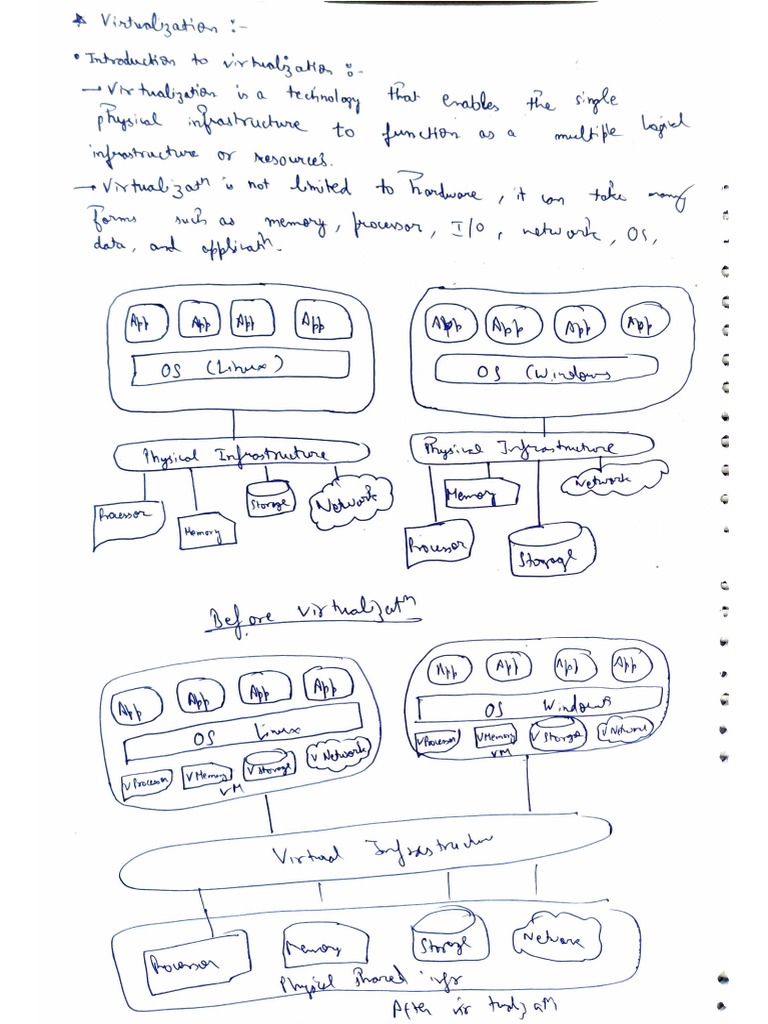 * Virtualization :-
• Introduction to virtualization :-
→ Virtualization is a technology that enables the single
physical infrastructure to function as a multiple logical
infrastructure or resources.
→ Virtualizatⁿ is not limited to hardware, it can take many
forms such as memory, processor, I/O, network, OS,
data, and applicatⁿ.
App App App App
OS (Linux)
Physical Infrastructure
Processor Memory Storage Network
App App App App
OS (Windows
Physical Infrastructure
Processor Memory Storage Network
Before virtualizatⁿ
App App App App
OS Linux
V Processor V Memory V Storage V Network
VM
App App App App
OS Windows
V Processor V Memory V Storage V Network
VM
Virtual Infrastructure
Processor Memory Storage Network
Physical Shared infr
After virtualizatⁿ